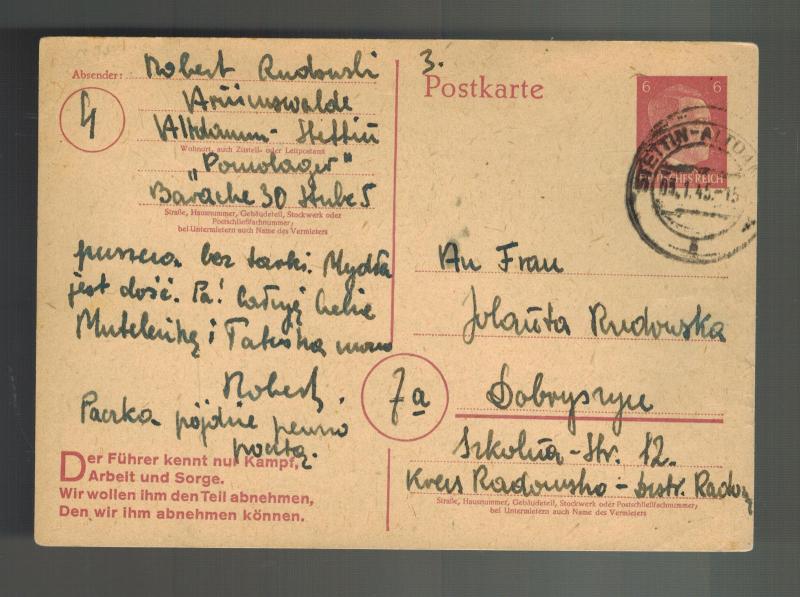 Absender: Robert Rudowski
Arnimswalde
4
Altdamm - Stettin
Wohnort, auch Zustell- oder Leitpostamt
"Pomolager"
Barache 30 Stube 5
Straße, Hausnummer, Gebäudeteil, Stockwerk oder
Postschließfachnummer;
bei Untermietern auch Name des Vermieters
puszcza bez tarki. Mydła
jest dość. Pa! Całuję Ciebie
Muteleńką i Tatuśka
Robert.
Paczka pójdzie pewno
pocztą.
Der Führer kennt nur Kampf,
Arbeit und Sorge.
Wir wollen ihm den Teil abnehmen,
Den wir ihm abnehmen können.
3.
Postkarte
6 6
DEUTSCHES REICH
STETTIN-ALTDAMM
An Frau
Jolanta Rudowska
7a
Dobryszyce
Szkolna-Str. 12.
Kreis Radomsko - Distr. Radom
Straße, Hausnummer, Gebäudeteil, Stockwerk oder Postschließfachnummer;
bei Untermietern auch Name des Vermieters